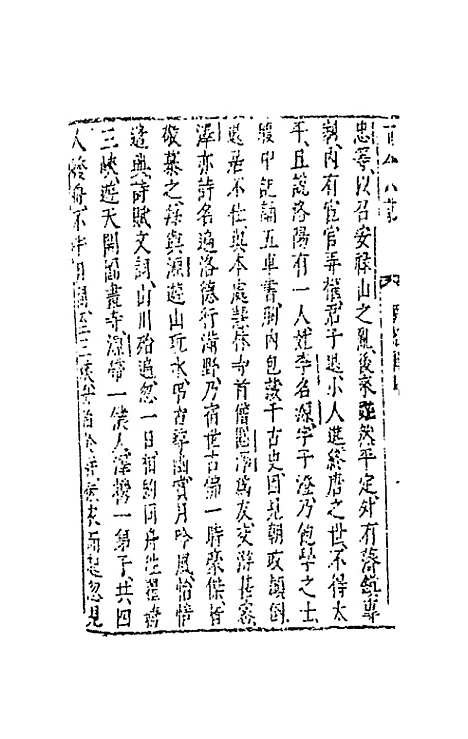 忠等以召安祿山之亂後來雖然平定外有藩鎮專
制內有宦官弄權君子退小人進終唐之世不得太
平且說洛陽有一人姓李名源字子澄乃飽學之士
腹中記誦五車書胸內包藏千古史因見朝政顛倒
退居不仕與本處慧林寺首僧圓澤為友交游甚密
澤亦詩名遍洛德行滿野乃宿世古佛一時豪傑皆
敬慕之每與源遊山玩水弔古尋幽賞月吟風怡情
遣興詩賦文詞山川殆遍忽一日相約同舟往瞿塘
三峽遊天開圖畫寺源帶一僕人澤攜一弟子共四
人發舟不半月間至三峽舟泊於岸振衣而起忽見